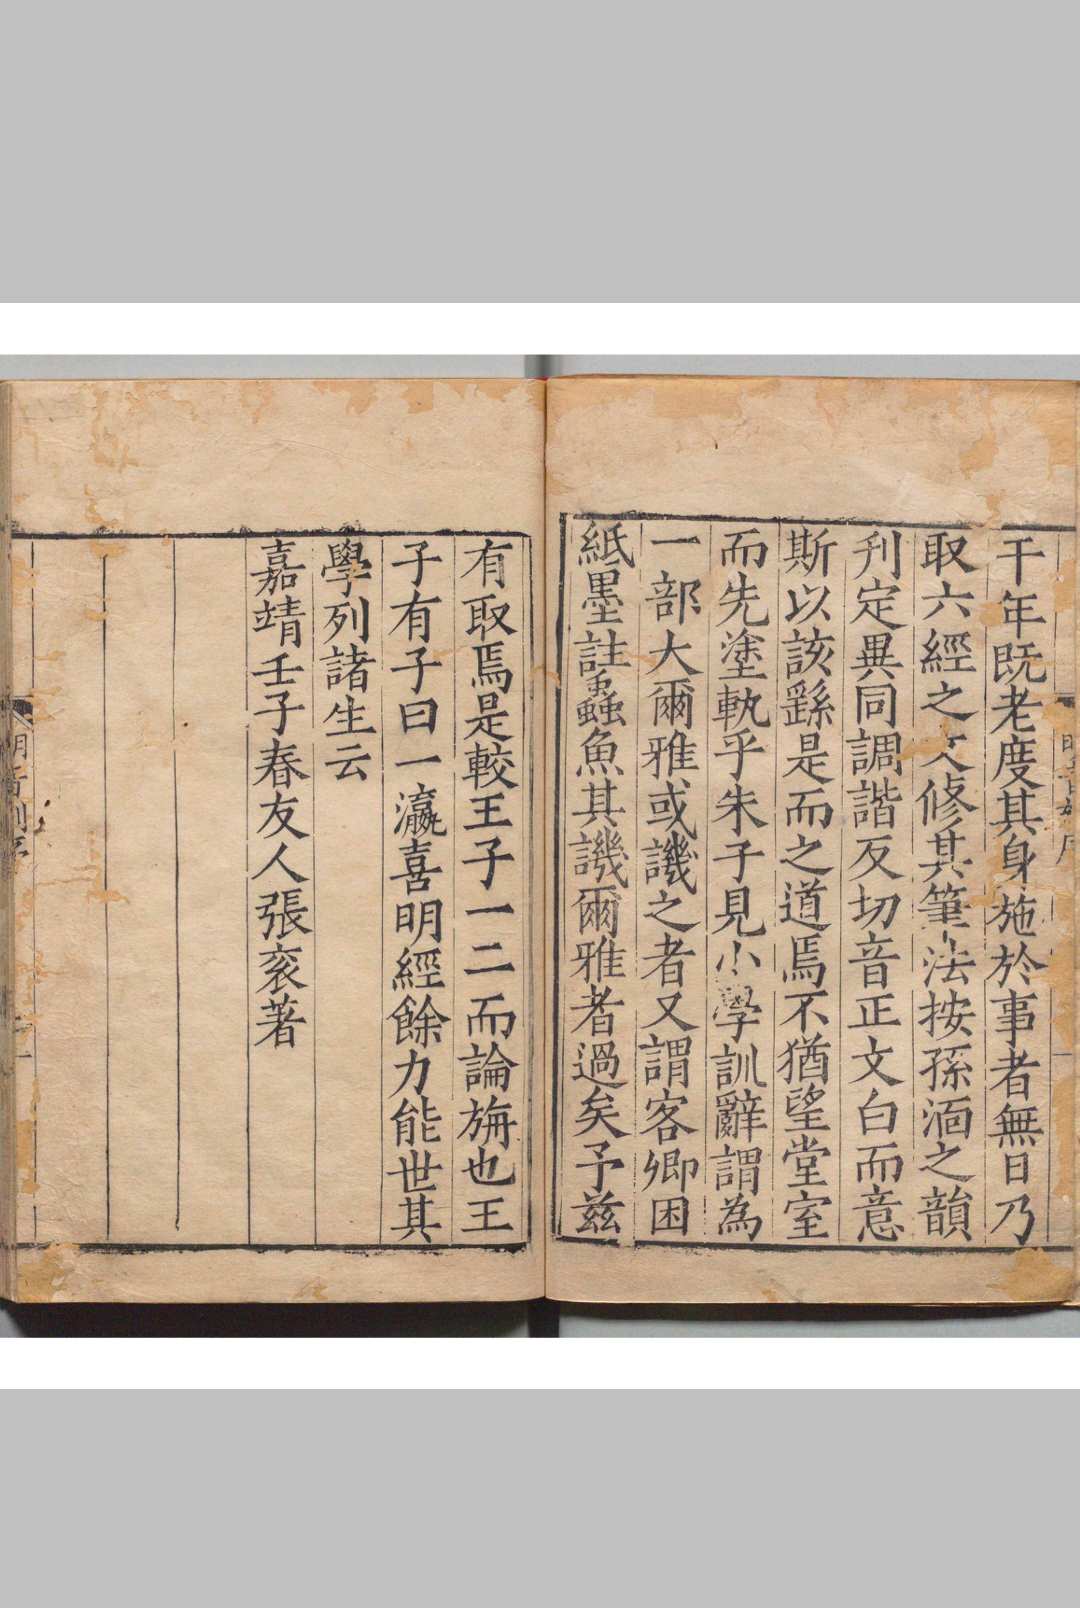 干年既老度其身施於事者無日乃
取六經之文修其筆法按孫洏之韻
刋定異同調諧反切音正文白而意
斯以該繇是而之道焉不猶望堂室
而先塗軌乎朱子見小學訓辭謂為
一部大爾雅或譏之者又謂客卿困
紙墨註蟲魚其譏爾雅者過矣予兹
有取焉是較王子一二而論旃也王
子有子曰一瀛喜明經餘力能世其
學列諸生云
嘉靖壬子春友人張衮著